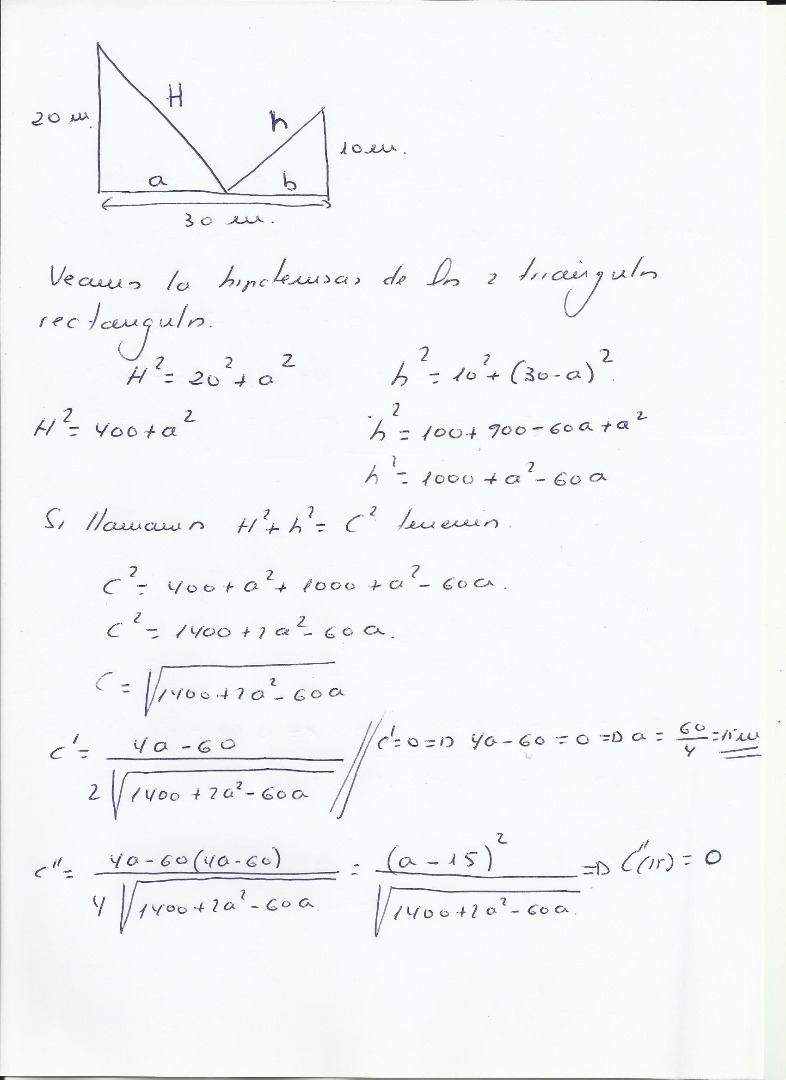 20 m.
H
h
10 m.
a
b
30 m.
Veamos la hipotenusas de los 2 triángulos
rectangulos.
H² = 20² + a²    h² = 10² + (30-a)².
H² = 400 + a²    h² = 100 + 900 - 60a + a²
h² = 1000 + a² - 60a
Si llamamos H² + h² = C² tenemos.
C² = 400 + a² + 1000 + a² - 60a.
C² = 1400 + 2a² - 60a.
C = √(1400 + 2a² - 60a)
C' = (4a - 60) / (2√(1400 + 2a² - 60a)) // C' = 0 => 4a - 60 = 0 => a = 60/4 = 15 m
C'' = (4a - 60(4a - 60)) / (4√(1400 + 2a² - 60a.)) = (a - 15)² / √(1400 + 2a² - 60a.) => C''(15) = 0